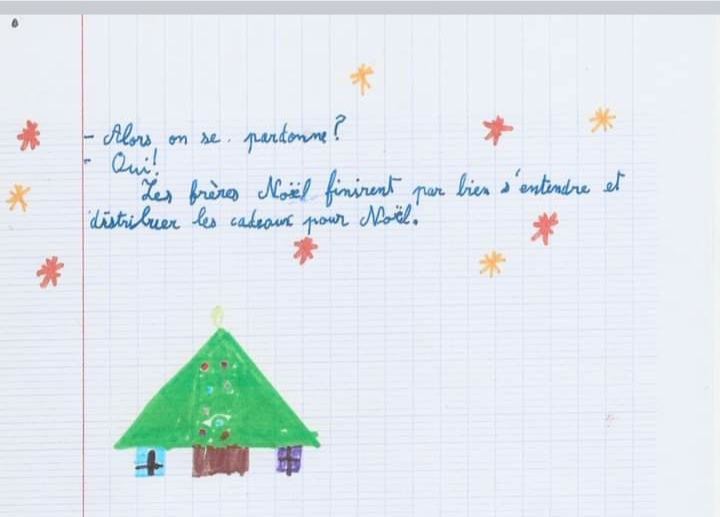 - Alors on se pardonne?
- Oui!
Les frères Noël finirent par bien s'entendre et
distribuer les cadeaux pour Noël.